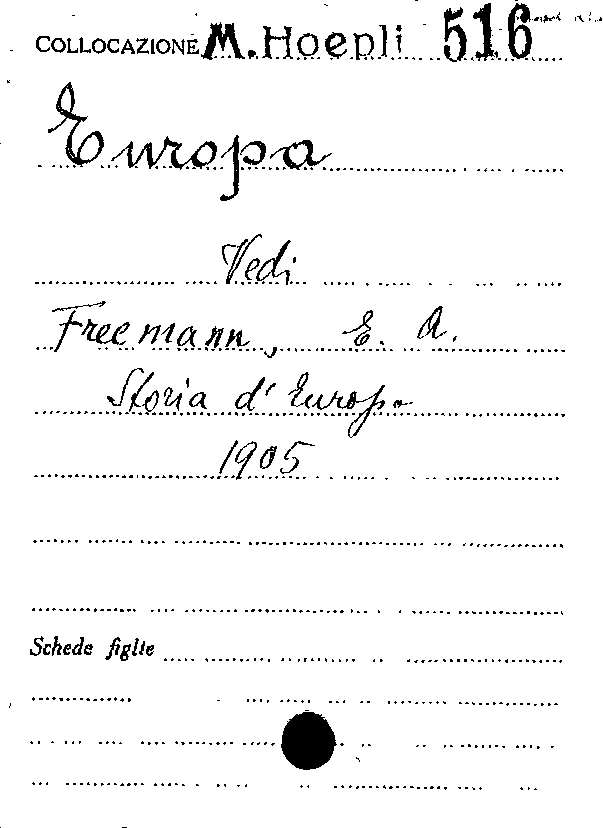 COLLOCAZIONE M. Hoepli 516
Europa
Vedi
Freemann, E. A.
Storia d'Europa
1905
Schede figlie